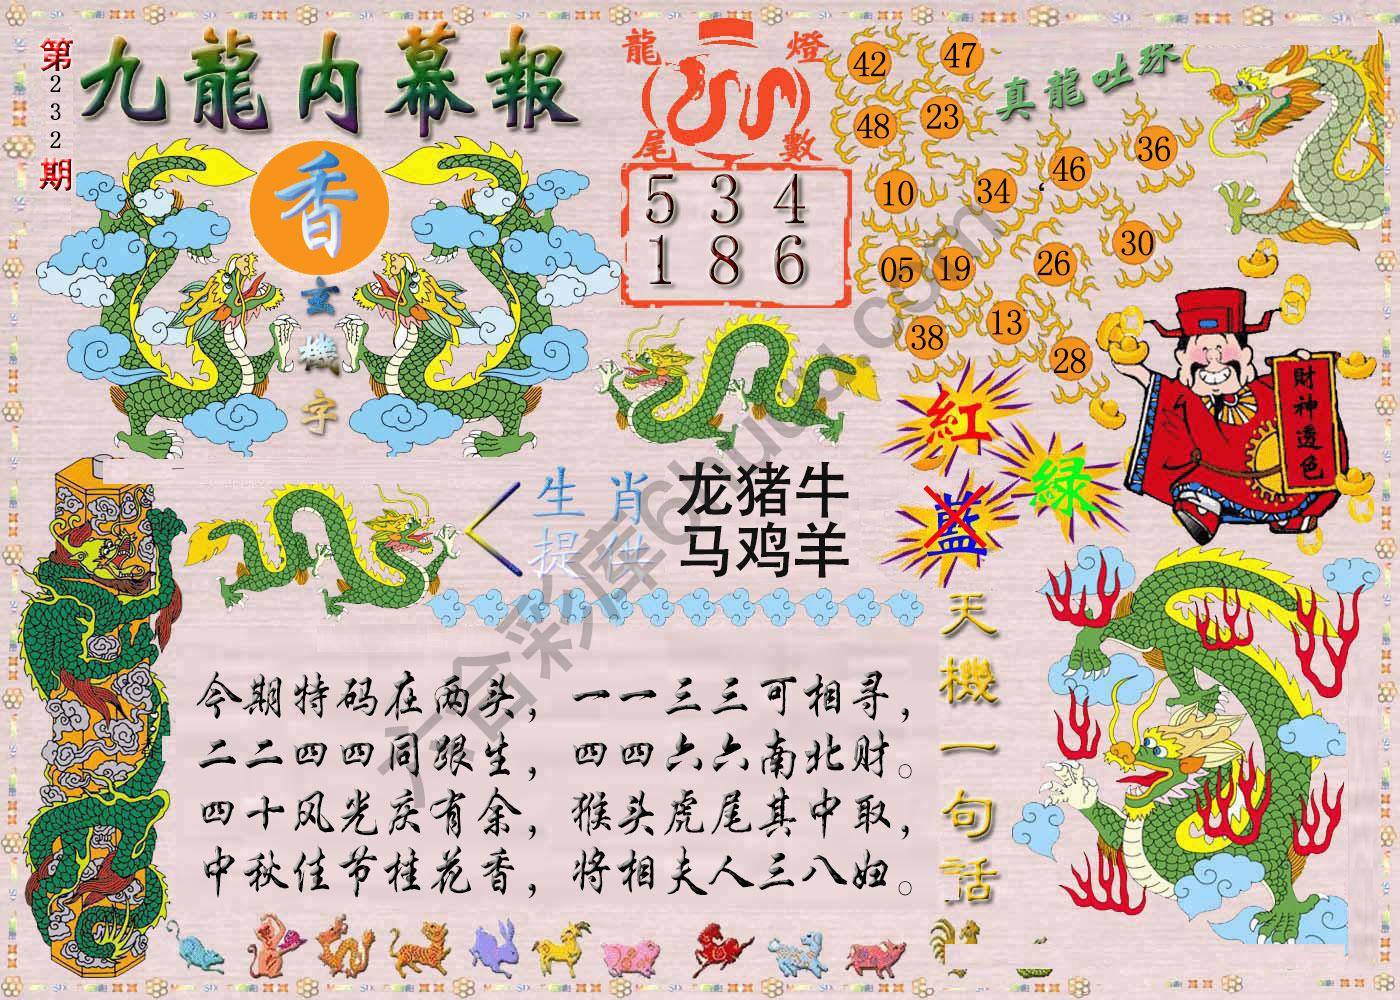 第232期
九龍内幕報
香
玄機字
龍燈尾數
5 3 4
1 8 6
真龍吐珠
42 47
48 23
10 34 46 36
05 19 26 30
38 13
28
財神透色
紅
绿
蓝
生肖提供
龙猪牛
马鸡羊
天機一句话
今期特码在两头，一一三三可相寻，
二二四四同跟生，四四六六南北财。
四十风光庆有余，猴头虎尾其中取，
中秋佳节桂花香，将相夫人三八妞。